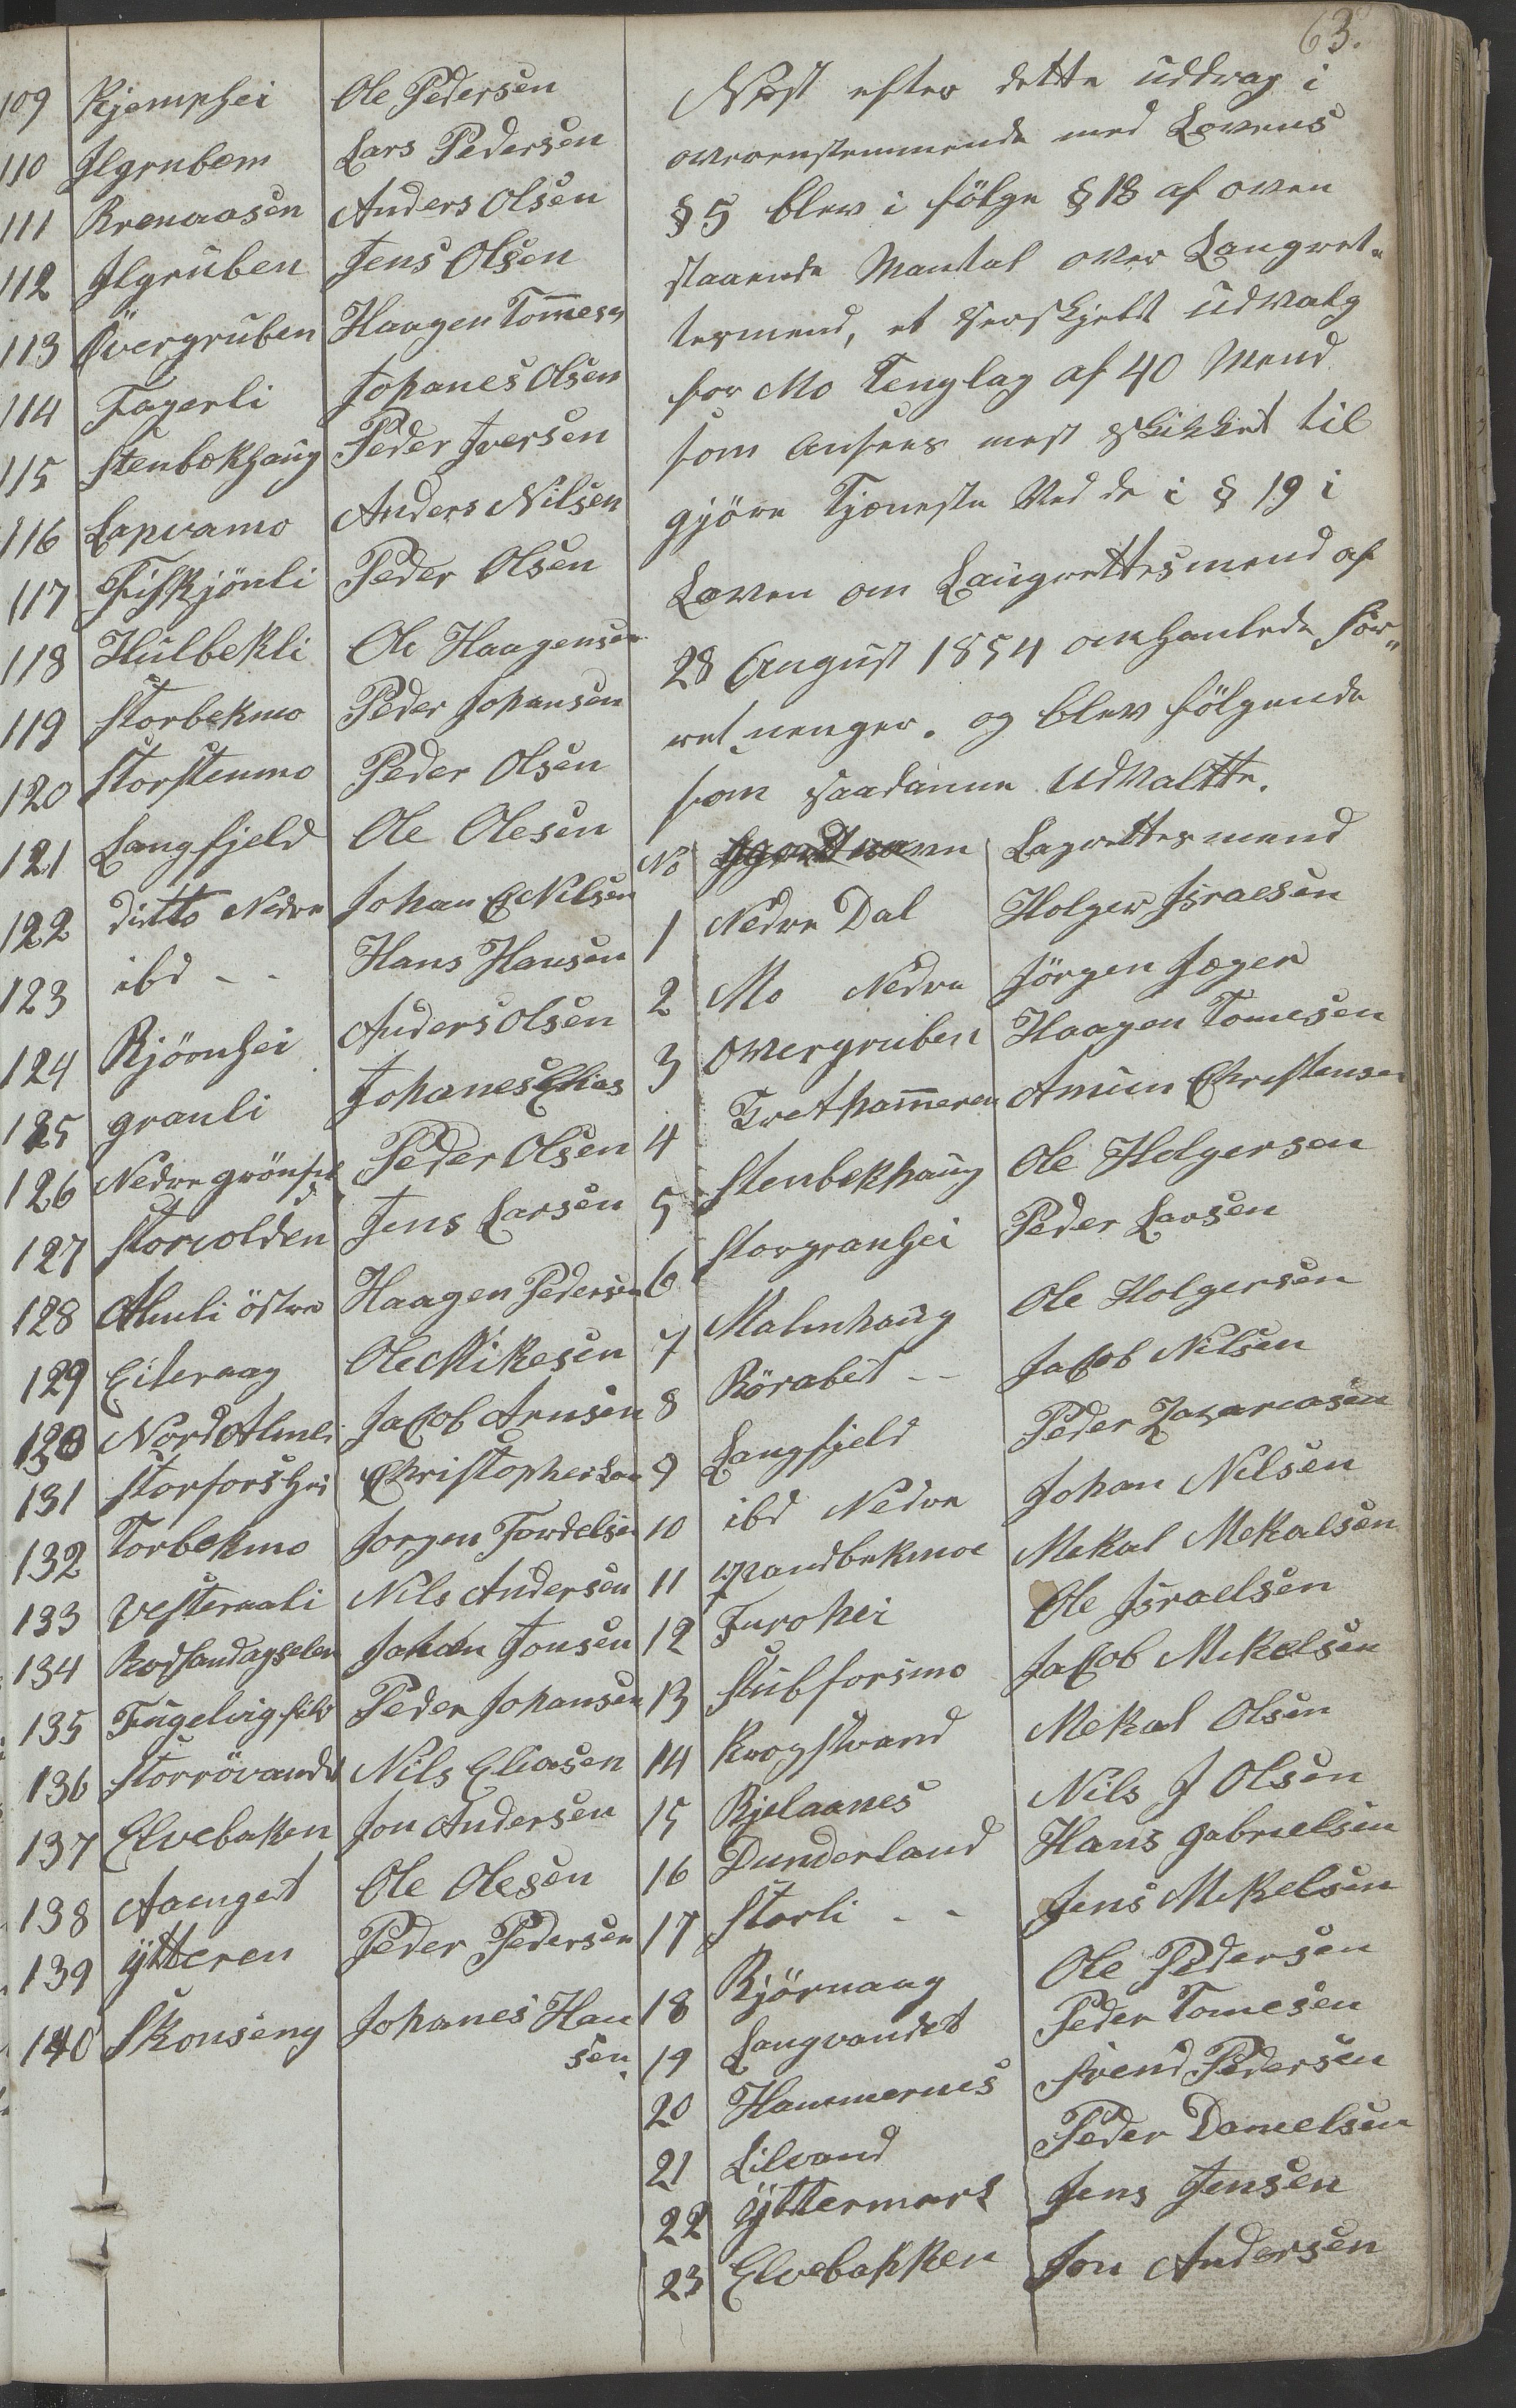 63.
109 Kjemphei Ole Pedersen
110 Ilgrubem Lars Pedersen
111 Brenaasen Anders Olsen
112 Ilgruben Jens Olsen
113 Övergruben Haagen Tom̅esen
114 Fagerli Johanes Olsen
115 Stenbekhaug Peder Iversen
116 Lapvamo Anders Nilsen
117 Fiskjönli Peder Olsen
118 Hulbekli Ole Haagensen
119 Storbekmo Peder Johansen
120 Storstenmo Peder Olsen
121 Langfjeld Ole Olesen
122 ditto Nedre Johan E Nilsen
123 ibd - - Hans Hansen
124 Bjömhei Anders Olsen
125 granli Johanes Elias
126 Nedre grönfjeld Peder Olsen
127 Storvolden Jens Larsen
128 Almli östre Haagen Pedersen
129 Eiteraag Ole Mikesen
130 Nord Almli Jacob Arnsen
131 Storforshei Christopher Lar
132 Torbekmo Jorgen Tordelsen
133 Vesteraali Nils Andersen
134 Johan Jonsen
135 Fugelvig Peder Johansen
136 Storrövandet Nils Eliasen
137 Elvebaken Jon Andersen
138 Aaenget Ole Olesen
139 Ytteren Peder Pedersen
140 Skonseng Johanes Han
sen
Næst efter dette uddrag i
overenstemmende med Lovens
§ 5 blev i fölge § 18 af oven
staaende Mantal over Laugret-
tesmend, et serskjelt udvalg
for Mo Tinglag af 40 Mend
som ansees mest skikket til
gjöre Tjeneste ved de i § 19 i
Loven om Laugrettesmend af
28 August 1854 omhanlede for-
retnenger. og blev fölgende
som saadanne Udvaltte.
No navn Lagrettesmend
1 Nedre Dal Holger Israesen
2 Mo Nedre Jörgen Jæger
3 Overgruben Haagen Tomesen
4 Trætham̅eren Amun Christensen
5 Stenbekhaug Ole Holgersen
6 Storgranhei Peder Larsen
7 Malmhaug Ole Holgersen
8 Rörabet - - Jacob Nilsen
9 Langfjeld Peder Zacariasen
10 ibd Nedre Johan Nilsen
11 Randbekmoe Mekal Mekalsen
12 Furohei Ole Israelsen
13 Stubforsmo Jacob Mikelsen
14 Krogstrand Mekal Olsen
15 Bjelaanes Nils J Olsen
16 Dunderland Hans Gabrielsen
17 Storli - - Jens Mikelsen
18 Björnaag Ole Pedersen
19 Langvandet Peder Tomesen
20 Hammernes Svend Pedersen
21 Lilvand Peder Danielsen
22 Yttermark Jens Jensen
23 Elvebakken Jon Andersen